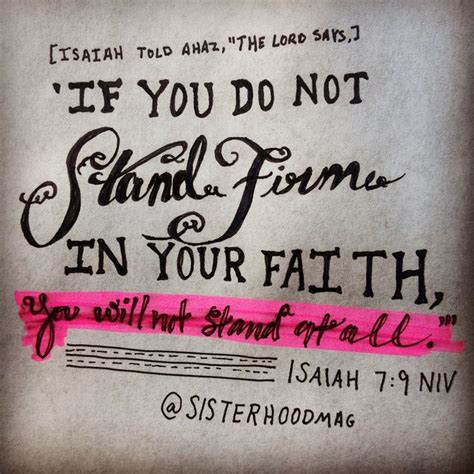 [ISAIAH TOLD AHAZ, "THE LORD SAYS,]
'IF YOU DO NOT
Stand Firm
IN YOUR FAITH,
You will not stand at all.'"
ISAIAH 7:9 NIV
@SISTERHOODMAG